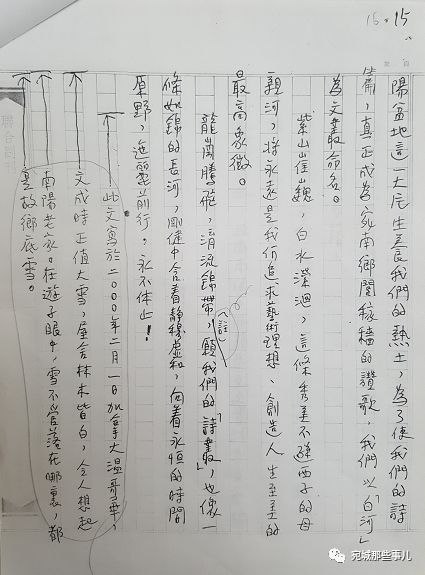 15.15
陽盆地這一大片生養我們的熱土，為了使我們的詩
篇，真正成為宛南鄉間稼穡的讚歌，我們以「白河」
為文叢命名。
紫山崔巍，白水瀠洄，這條秀美不讓西子的母
親河，將永遠是我們追求藝術理想、創造人生至美的
最高象徵。
龍崗騰飛，清流錦帶，願我們的「詩叢」，也像一
（註）
條如錦的長河，剛健中含着靜穆虛和，向着永恒的時間
原野，迤邐前行，永不休止！
此文寫於二000年二月一日加拿大温哥華，
文成時正值大雪，屋舍林木皆白，令人想起
南陽老家。在遊子眼中，雪不管落在哪裏，都
是故鄉底雪。
宛城那些事儿